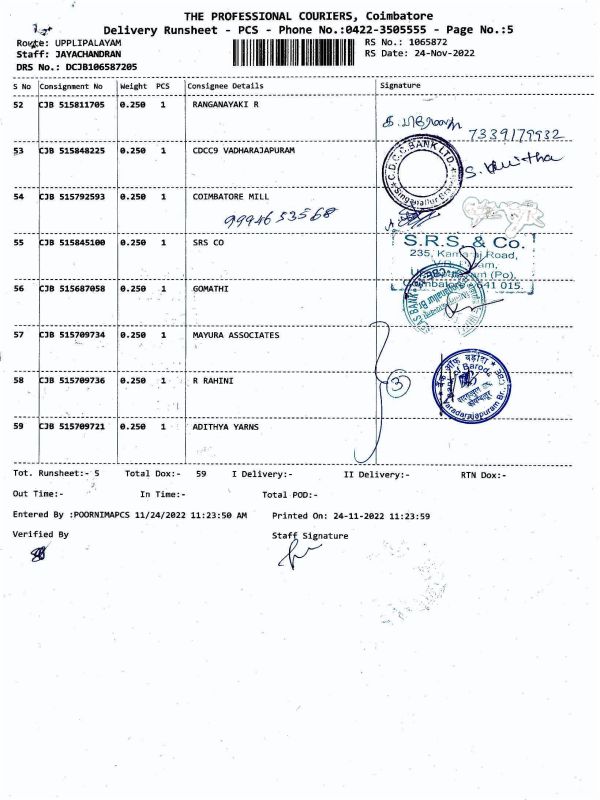 THE PROFESSIONAL COURIERS, Coimbatore
Delivery Runsheet - PCS - Phone No.:0422-3505555 - Page No.:5
Route: UPPLIPALAYAM RS No.: 1065872
Staff: JAYACHANDRAN RS Date: 24-Nov-2022
DRS No.: DCJB106587205
S No Consignment No Weight PCS Consignee Details Signature
52 CJB 515811705 0.250 1 RANGANAYAKI R
7339179932
53 CJB 515848225 0.250 1 CDCC9 VADHARAJAPURAM
C.D.C.C. BANK LTD.
Singanallur
54 CJB 515792593 0.250 1 COIMBATORE MILL
9994653568
55 CJB 515845100 0.250 1 SRS CO
S.R.S. & Co.
235, Kamaraj Road,
641 015.
56 CJB 515687058 0.250 1 GOMATHI
57 CJB 515709734 0.250 1 MAYURA ASSOCIATES
58 CJB 515709736 0.250 1 R RAHINI
3
बैंक ऑफ बड़ौदा
Bank of Baroda
Varadarajapuram Br., CBE
59 CJB 515709721 0.250 1 ADITHYA YARNS
Tot. Runsheet:- 5 Total Dox:- 59 I Delivery:- II Delivery:- RTN Dox:-
Out Time:- In Time:- Total POD:-
Entered By :POORNIMAPCS 11/24/2022 11:23:50 AM Printed On: 24-11-2022 11:23:59
Verified By Staff Signature